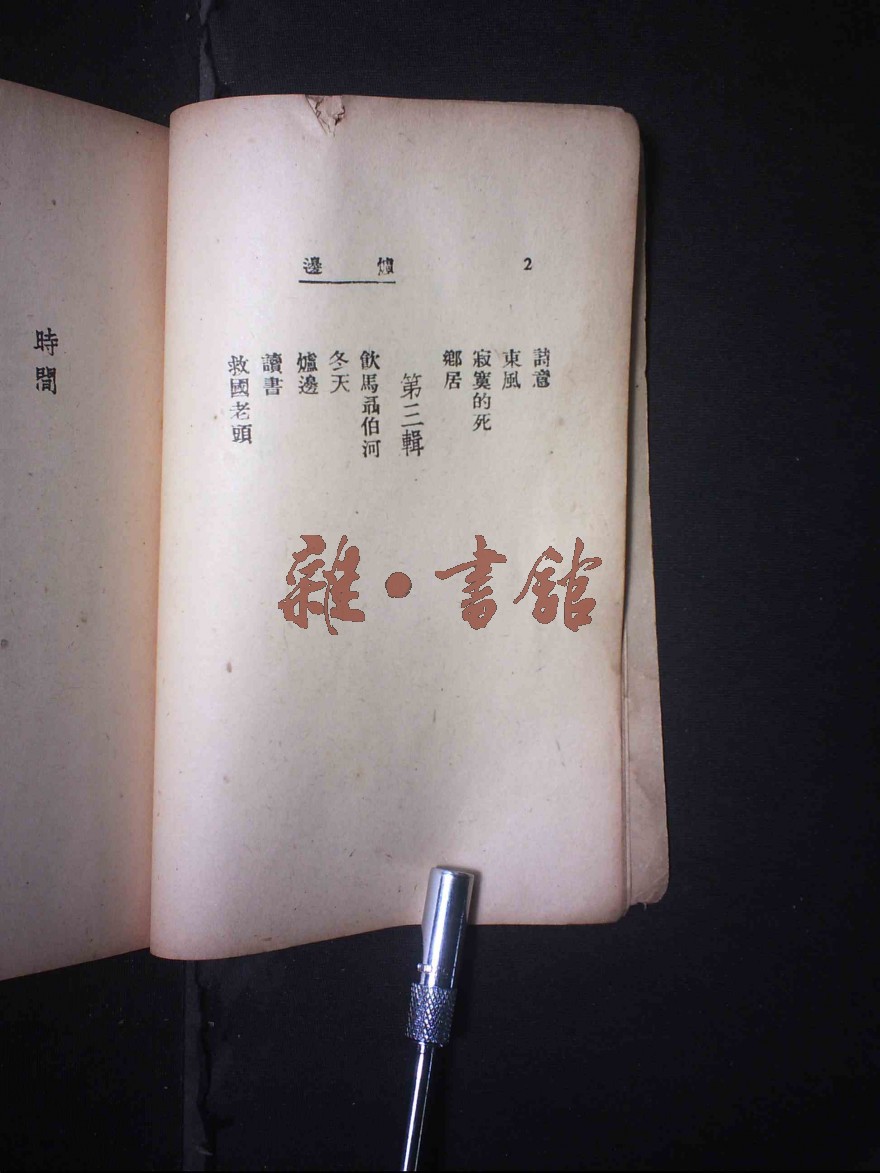 爐邊
2
詩意
東風
寂寞的死
鄉居
第三輯
飲馬聶伯河
冬天
爐邊
讀書
救國老頭
時間
雜·書館